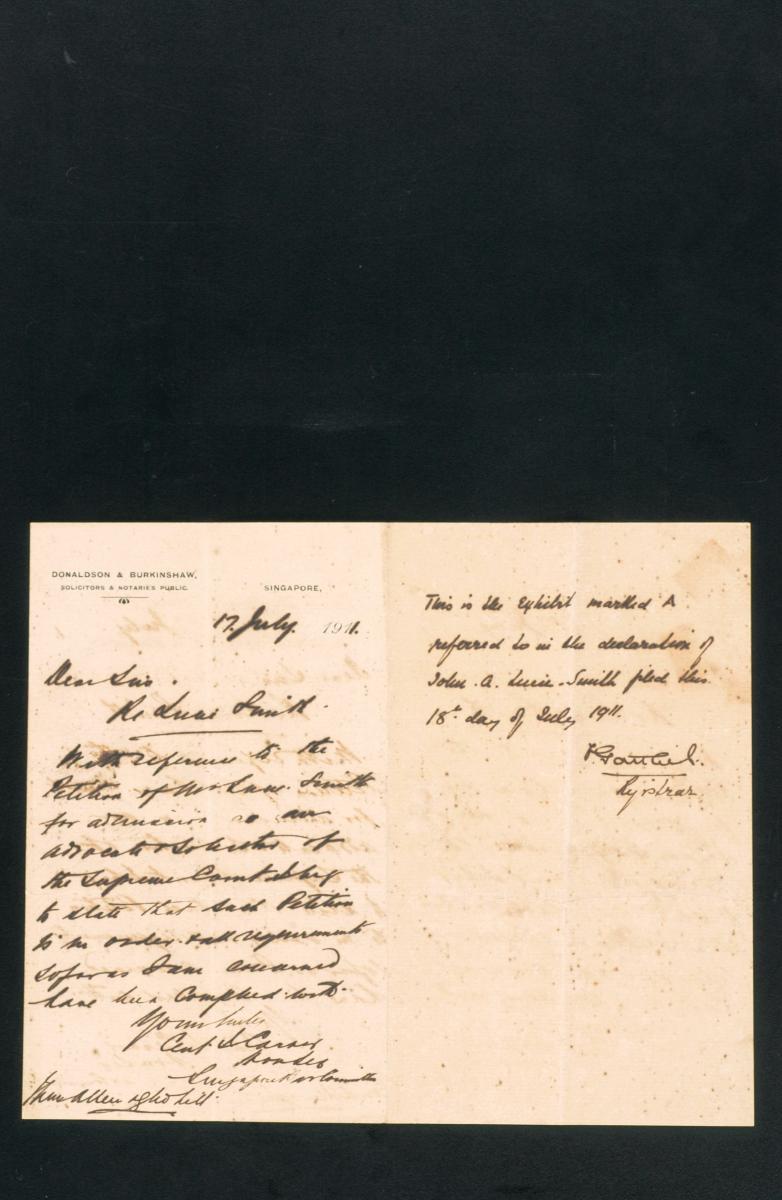 DONALDSON & BURKINSHAW,
SOLICITORS & NOTARIES PUBLIC.
SINGAPORE,
17 July. 1911.
Dear Sirs.
Re Lucie Smith.
With reference to the
Petition of Mr Lucie-Smith
for admission as an
advocate & Solicitor of
the Supreme Court I beg
to state that such Petition
is in order & all requirements
so far as I am concerned
have been complied with.
Yours truly
Singapore Bar Committee
This is the Exhibit marked A
referred to in the declaration of
John. A. Lucie-Smith filed this
18th day of July 1911.
Registrar